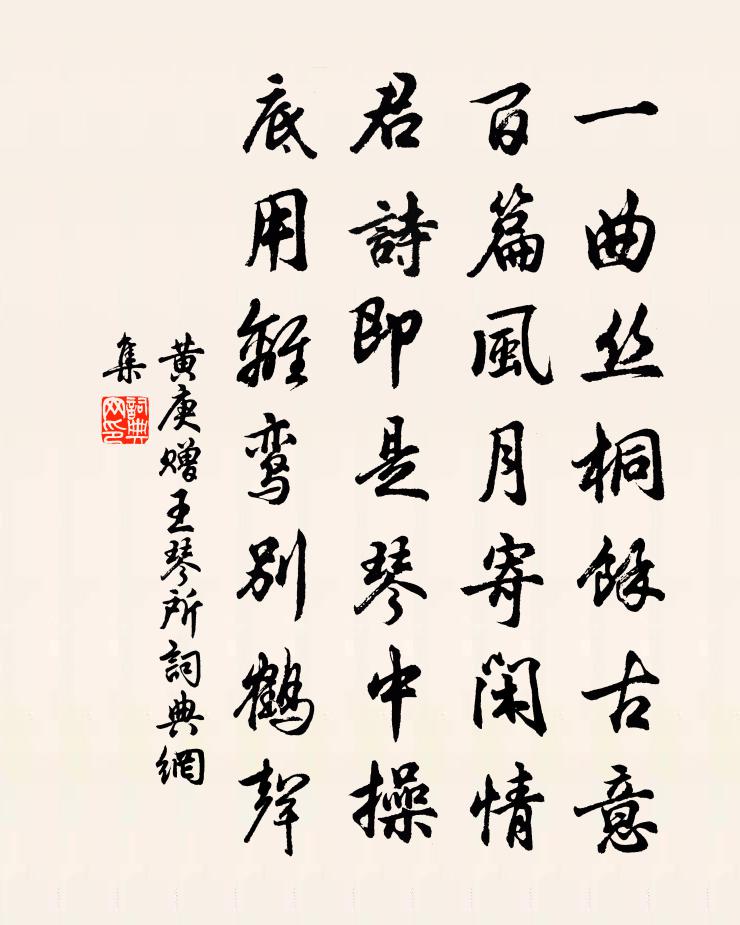 一曲丝桐餘古意
百篇風月寄閑情
君詩即是琴中操
底用離鸾別鶴聲
黄庚赠王琴所詞典網
集
詞典
网印